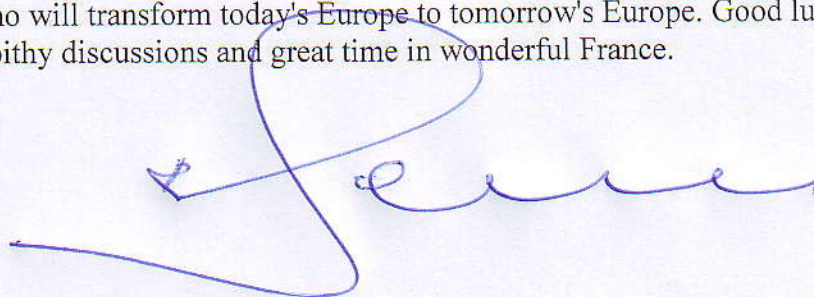 ho will transform today's Europe to tomorrow's Europe. Good lu
pithy discussions and great time in wonderful France.